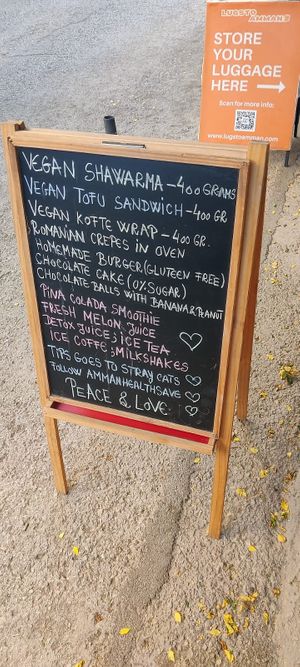 LUGSTO AMMAN
STORE
YOUR
LUGGAGE
HERE
Scan for more info:
www.lugstoamman.com
VEGAN SHAWARMA - 400 GRAMS
VEGAN TOFU SANDWICH - 400 GR
VEGAN KOFTE WRAP - 400 GR.
ROMANIAN CREPES IN OVEN
HOMEMADE BURGER (GLUTEEN FREE)
CHOCOLATE CAKE (0% SUGAR)
CHOCOLATE BALLS WITH BANANA & PEANUT
PINA COLADA SMOOTHIE
FRESH MELON JUICE
DETOX JUICE; ICE TEA
ICE COFFE; MILKSHAKES
TIPS GOES TO STRAY CATS
FOLLOW AMMANHEALTHSAVE
PEACE & LOVE